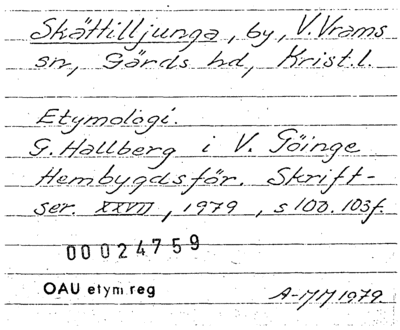 Skättilljunga, by, V. Vrams
sn, Gärds hd, Krist. l.
Etymologi.
G. Hallberg i V. Göinge
Hembygdsför. Skrift-
ser. XXVII, 1979, s 100. 103f.
00024759
OAU etym reg
1979.